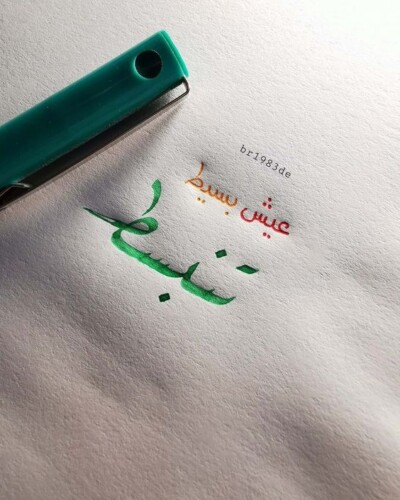 br1983de
عيش بسيط
تنبسط